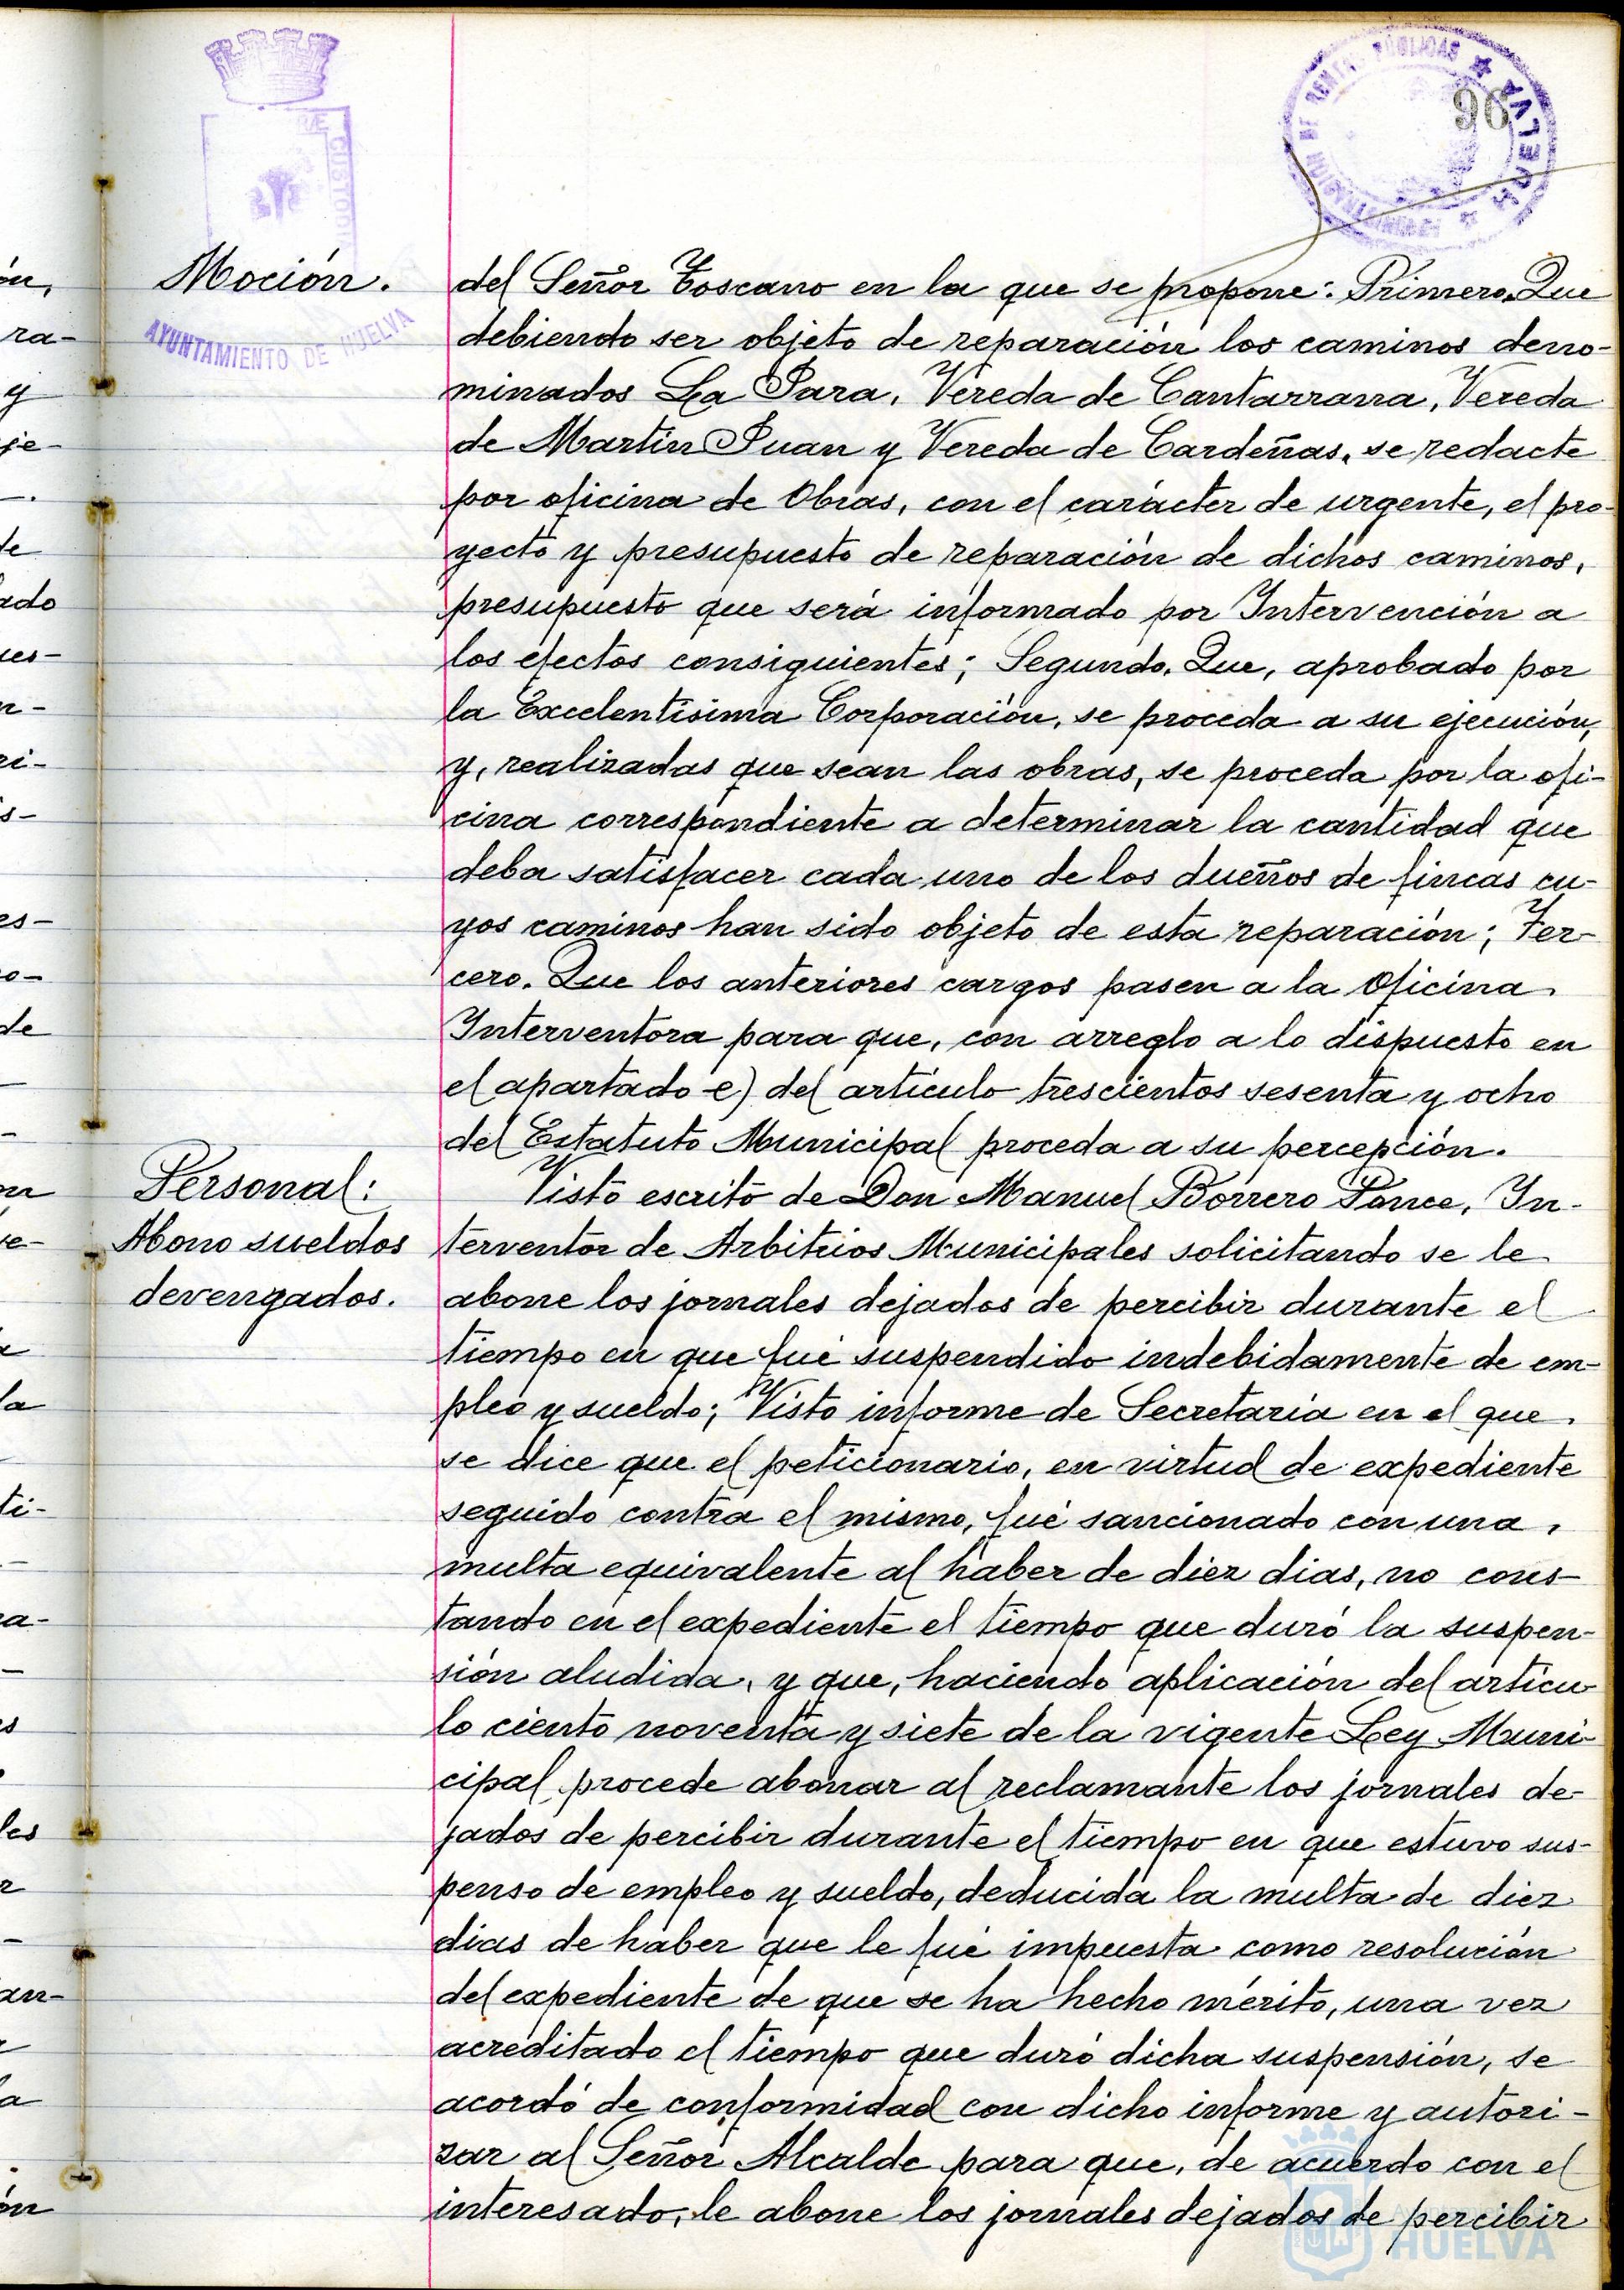 96
Moción.
del Señor Toscano en la que se propone: Primero. Que
debiendo ser objeto de reparación los caminos deno-
minados La Para, Vereda de Cantarrana, Vereda
de Martín Juan y Vereda de Cardeñas, se redacte
por oficina de Obras, con el carácter de urgente, el pro-
yecto y presupuesto de reparación de dichos caminos,
presupuesto que será informado por Intervención a
los efectos consiguientes; Segundo. Que, aprobado por
la Excelentísima Corporación, se proceda a su ejecución,
y, realizadas que sean las obras, se proceda por la ofi-
cina correspondiente a determinar la cantidad que
deba satisfacer cada uno de los dueños de fincas cu-
yos caminos han sido objeto de esta reparación; Ter-
cero. Que los anteriores cargos pasen a la Oficina
Interventora para que, con arreglo a lo dispuesto en
el apartado e) del artículo trescientos sesenta y ocho
del Estatuto Municipal proceda a su percepción.
Personal:
Abono sueldos
devengados.
Visto escrito de Don Manuel Borrero Ponce, In-
terventor de Arbitrios Municipales solicitando se le
abone los jornales dejados de percibir durante el
tiempo en que fué suspendido indebidamente de em-
pleo y sueldo; Visto informe de Secretaría en el que
se dice que el peticionario, en virtud de expediente
seguido contra el mismo, fué sancionado con una
multa equivalente al haber de diez dias, no cons-
tando en el expediente el tiempo que duró la suspen-
sión aludida, y que, haciendo aplicación del artícu-
lo ciento noventa y siete de la vigente Ley Muni-
cipal, procede abonar al reclamante los jornales de-
jados de percibir durante el tiempo en que estuvo sus-
penso de empleo y sueldo, deducida la multa de diez
dias de haber que le fué impuesta como resolución
del expediente de que se ha hecho mérito, una vez
acreditado el tiempo que duró dicha suspensión, se
acordó de conformidad con dicho informe y autori-
zar al Señor Alcalde para que, de acuerdo con el
interesado, le abone los jornales dejados de percibir
AYUNTAMIENTO DE HUELVA
HUELVA
HUELVA